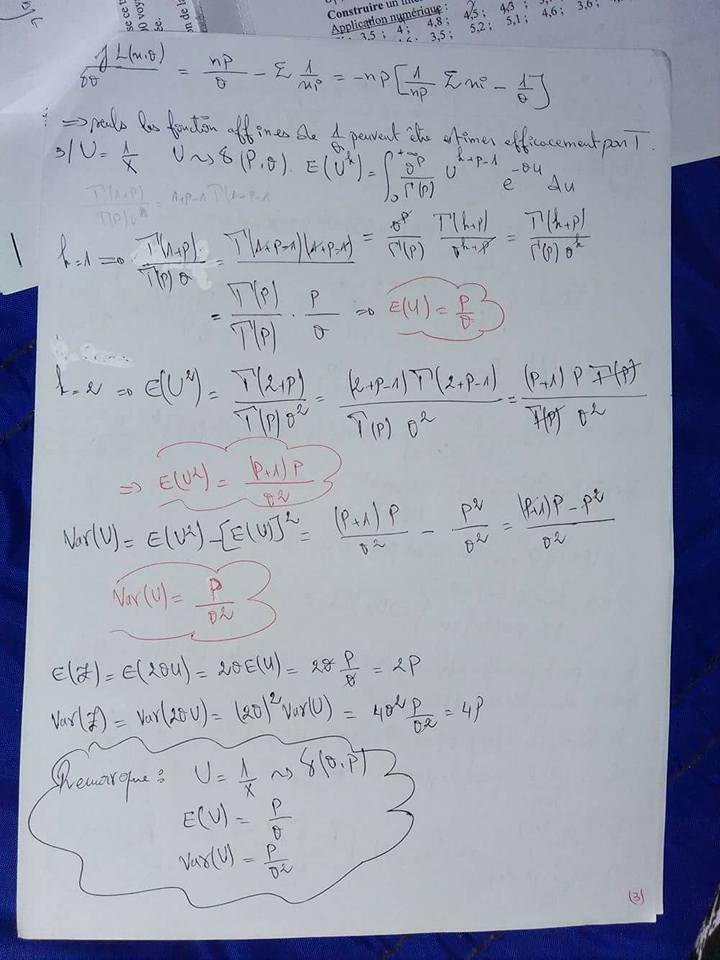 Construire un inter
Application numérique :
3,5 ; 4 ; 4,8 ; 4,5 ; 4,3 ;
3,5 ; 5,2 ; 5,1 ; 4,6 ; 3,6 ;
L(x,θ) / δθ = np/θ - Σ 1/xi = -np [1/np Σ xi - 1/θ]
⇒ seuls les fonction affines de 1/θ peuvent être estimer efficacement par T.
3/ U = 1/X U ~> γ(P,θ). E(U^k) = ∫₀^{+∞} θ^p/Γ(p) U^{k+p-1} e^{-θu} du
Γ(1+p)/Γ(p)θ^k = 1+p-1 Γ(1+p-1)
k=1 ⇒ Γ(1+p)/Γ(p)θ = Γ(1+p-1)(1+p-1) = θ^p/Γ(p) Γ(k+p)/θ^{k+p} = Γ(k+p)/Γ(p)θ^k
= Γ(p)/Γ(p) . p/θ ⇒ E(U) = P/θ
k=2 ⇒ E(U²) = Γ(2+p)/Γ(p)θ² = (2+p-1)Γ(2+p-1)/Γ(p) θ² = (p+1) p Γ(p)/Γ(p) θ²
⇒ E(U²) = (p+1)p/θ²
Var(U) = E(U²) - [E(U)]² = (p+1) p/θ² - p²/θ² = (p+1)p - p²/θ²
Var(U) = P/θ²
E(Z) = E(2θU) = 2θE(U) = 2θ P/θ = 2P
Var(Z) = Var(2θU) = (2θ)² Var(U) = 4θ² P/θ² = 4P
Remarque : U = 1/X ~> γ(θ,P)
E(U) = P/θ
Var(U) = P/θ²
(3)